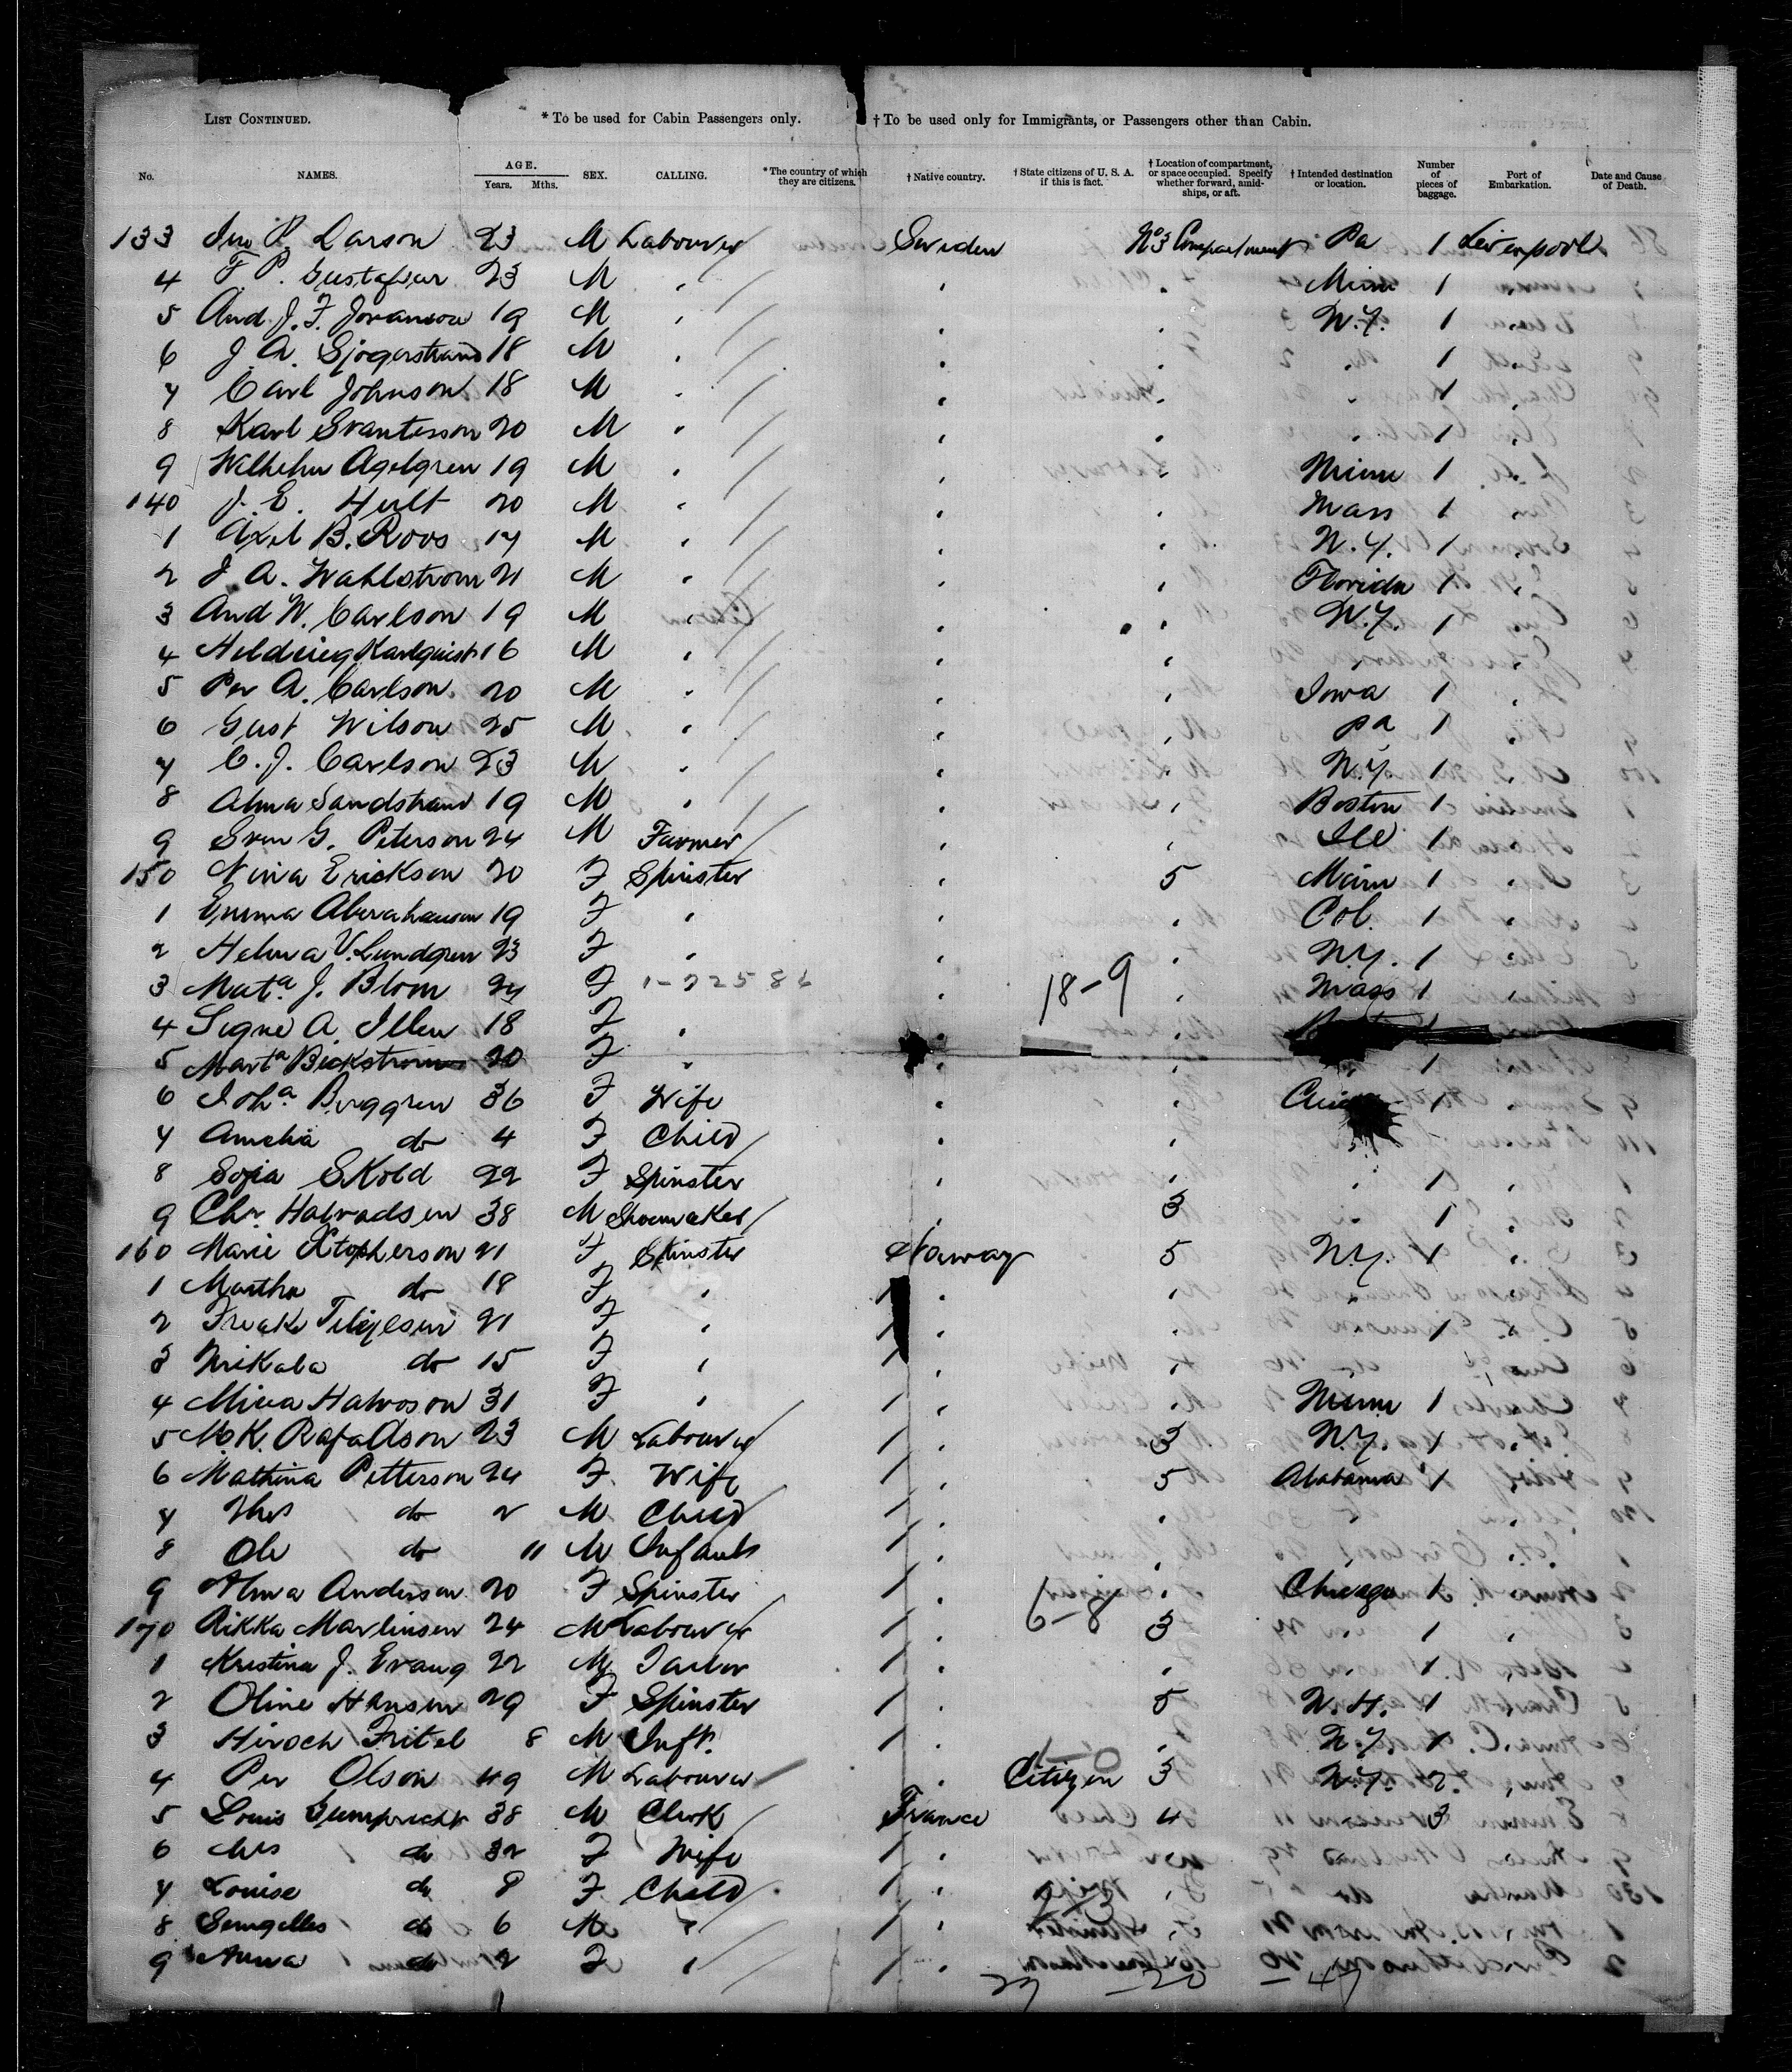 LIST CONTINUED. * To be used for Cabin Passengers only. † To be used only for Immigrants, or Passengers other than Cabin.
No. NAMES. AGE. Years. Mths. SEX. CALLING. * The country of which they are citizens. † Native country. † State citizens of U. S. A. if this is fact. † Location of compartment, or space occupied. Specify whether forward, amidships, or aft. † Intended destination or location. Number of pieces of baggage. Port of Embarkation. Date and Cause of Death.
133 Jno P. Larson 23 M Labourer Sweden No 3 Compartment Pa 1 Liverpool
4 F. P. Gustafson 23 M Minn 1
5 And. J. F. Joranson 19 M N.Y. 1
6 J. A. Sjogerstrand 18 M 1
7 Carl Johnson 18 M 1
8 Karl Svantesson 20 M 1
9 Wilhelm Agelgren 19 M Minn 1
140 J. E. Hult 20 M Mass 1
1 Axel B. Roos 17 M N.Y. 1
2 J. A. Wahlstrom 21 M Florida 1
3 And W. Carlson 19 M N.Y. 1
4 Karlquist 16 M
5 Per A. Carlson 20 M Iowa 1
6 Gust Wilson 25 M Pa 1
7 C. J. Carlson 23 M N.Y. 1
8 Alma Sandstrand 19 M Boston 1
9 Sven G. Peterson 24 M Farmer Ill 1
150 Nina Erickson 20 F Spinster 5 Minn 1
1 Emma Aberahamson 19 F Col. 1
2 Helma V. Lundgren 23 F N.Y. 1
3 Mata J. Blom 24 F 1-22586 18-9 Mass 1
4 Signe A. Illen 18 F 1
5 Marta Bickstrom 20 F 1
6 Joha Berggren 36 F Wife 1
7 Amelia do 4 F Child
8 Sofia Skold 22 F Spinster 1
9 Chr. Halvadsen 38 M Shoemaker 3 1
160 Marie Xtopherson 21 F Spinster Norway 5 N.Y. 1
1 Martha do 18 F
2 21 F 1
3 do 15 F
4 Mina Halvoson 31 F Minn 1
5 M. K. Rafaelson 23 M Labourer 3 N.Y. 1
6 Mathina Petterson 24 F Wife 5 Alabama 1
7 Thos do 2 M Child
8 Ole do 11 M Infant
9 Alma Anderson 20 F Spinster 6-8 Chicago 1
170 Rikka Marlinsen 24 M Labourer 3 1
1 Kristina J. Evang 22 M Tailor 1
2 Oline Hansen 29 F Spinster 5 N.H. 1
3 Hiroch Fritel 8 M Inft. N.Y. 1
4 Per Olson 49 M Labourer Citizen 3 N.Y. 2
5 Louis Gumprecht 38 M Clerk France 4 3
6 Mrs do 32 F Wife
7 Louise do 8 F Child
8 do 6 M
9 Anna do 2 F
29 - 20 - 47